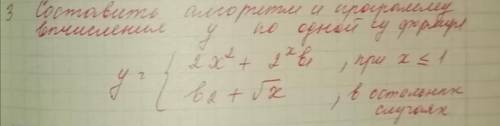 3 Составить алгоритм и программу
вычисления y по одной из формул
y = { 2x² + 2ˣb , при x ≤ 1
b2 + √x , в остальных
случаях